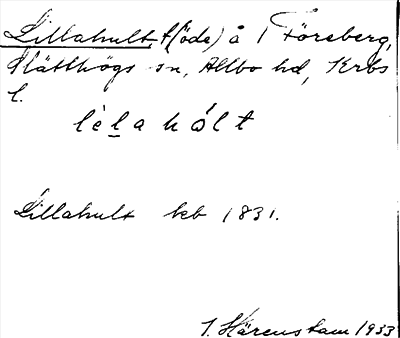 Lillahult, t(öde) å 1 Föreberg,
Slätthögs sn, Allbo hd, Krbs
l.
lèl̲a hólt
Lillahult kb 1831.
I. Härenstam 1933